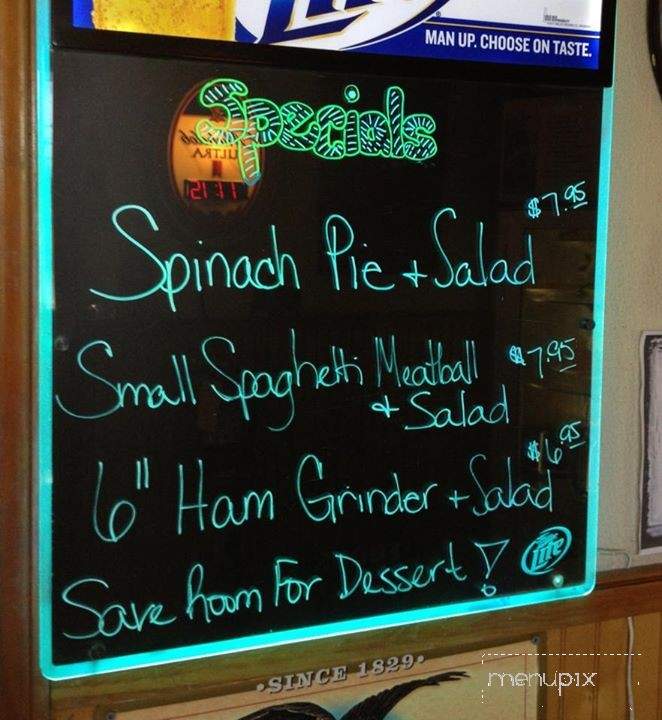 Lite
MAN UP. CHOOSE ON TASTE.
Specials
ULTRA
$7.95
Spinach Pie + Salad
Small Spaghetti Meatball $7.95
+ Salad
$6.95
6" Ham Grinder + Salad
Lite
Save Room For Dessert !
•SINCE 1829•
menupix